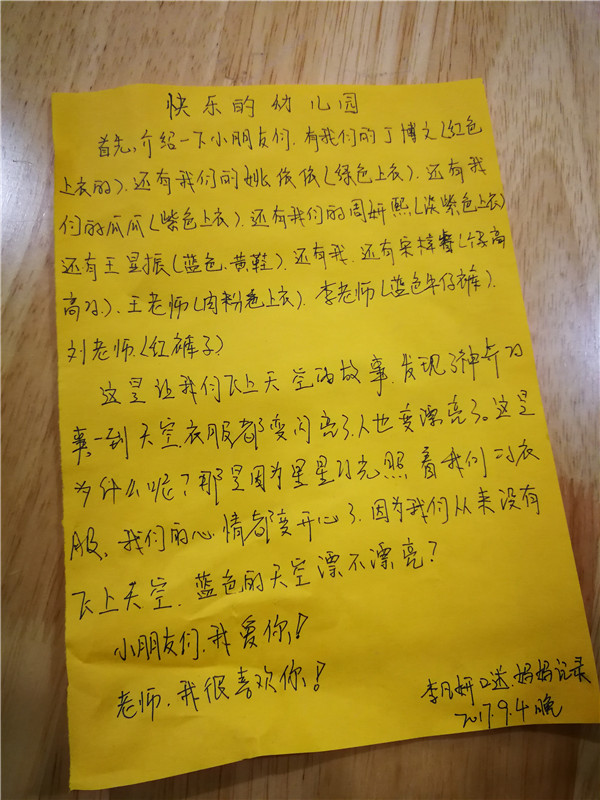 快乐的幼儿园
首先,介绍一下小朋友们.有我们的丁博文(红色
上衣的).还有我们的姚依依(绿色上衣).还有我
们的瓜瓜(紫色上衣).还有我们的周妍熙(淡紫色上衣)
还有王显振(蓝色.黄鞋).还有我.还有宋梓睿(个子高
高的).王老师(肉粉色上衣).李老师(蓝色牛仔裤).
刘老师.(红裤子)
这是让我们飞上天空的故事.发现了神奇的
事.一到天空.衣服都变闪亮了.人也变漂亮了。这是
为什么呢?那是因为星星的光照着我们的衣
服、我们的心情都变开心了.因为我们从来没有
飞上天空.蓝色的天空漂不漂亮?
小朋友们.我爱你!
老师.我很喜欢你!
李月妍口述.妈妈记录
2017.9.4晚